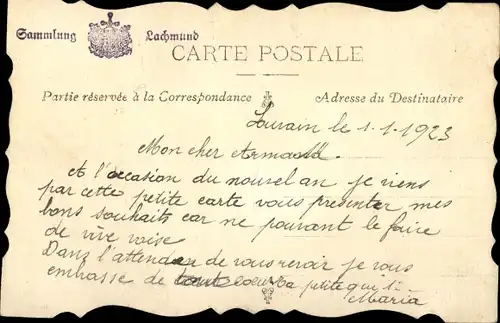 Sammlung Lachmund
CARTE POSTALE
Partie réservée à la Correspondance
Adresse du Destinataire
Louvain le 1.1.1923
Mon cher Armand.
A l'occasion du nouvel an je viens
par cette petite carte vous présenter mes
bons souhaits car ne pouvant le faire
de vive voise
Dans l'attende de vous revoir je vous
embrasse de tout coeur la petite
Maria